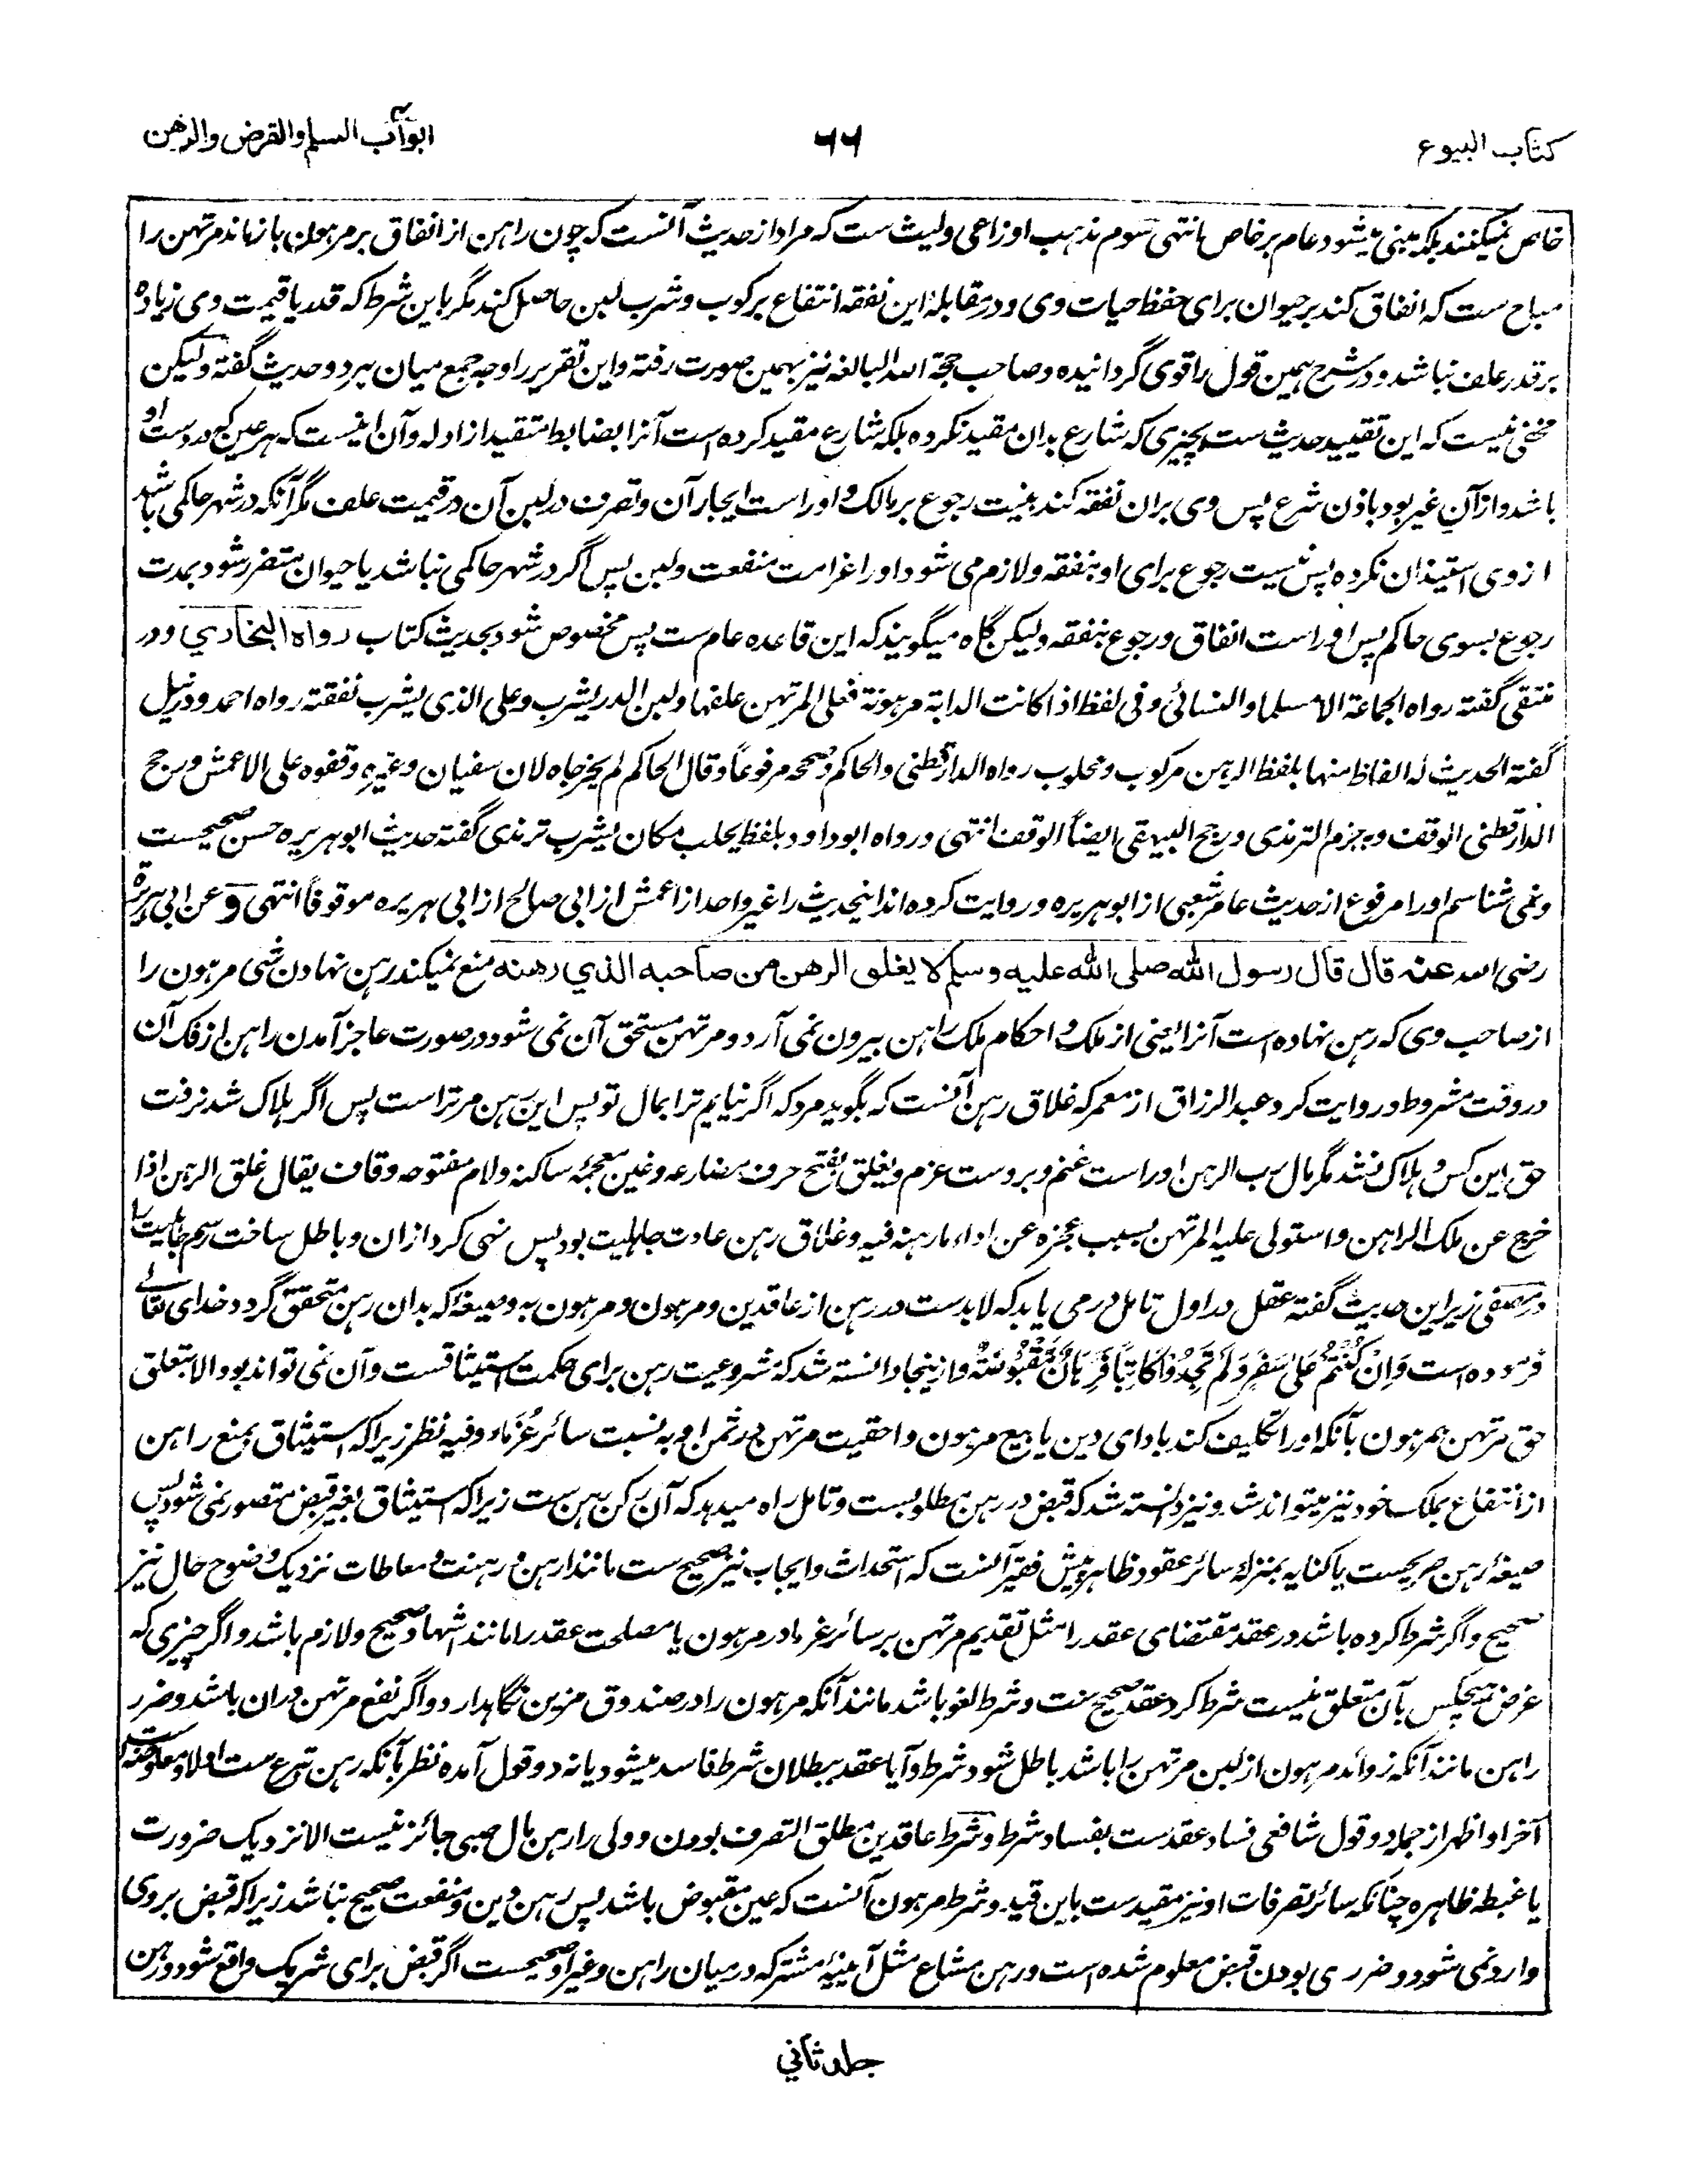 کتاب البیوع
۶۶
ابواب السلم والقرض والرهن
خاص نمیکنند بلکه مبنی میشود عام بر خاص انتهی سوم مذهب اوزاعی ولیث ست که مراد از حدیث آنست که چون راهن از انفاق بر مرهون باز ماند مرتهن را
مباح ست که انفاق کند بر حیوان برای حفظ حیات وی و در مقابلۀ این نفقه انتفاع برکوب وشرب لبن حاصل کند مگر باین شرط که قدر یا قیمت وی زیاده
بر قدر علف نباشد و در شرح همین قول را قوی گردانیده و صاحب حجة الله البالغه نیز بهمین صورت رفته و این تقریر را وجه جمع میان هر دو حدیث گفته و لیکن
مخفی نیست که این تقیید حدیث ست بچیزی که شارع بدان مقید نکرده بلکه شارع مقید کرده است آنرا بضابط متقید از ادله و آن اینست که هر عین که در دست او
باشد و از آنِ غیر بود باذن شرع پس وی بران نفقه کند بنیت رجوع بر مالک و او راست ایجار آن و تصرف در لبن آن در قیمت علف مگر آنکه در شهر حاکمی باشد
از وی استیذان نکرده پس نیست رجوع برای او بنفقه و لازم می شود او را غرامت منفعت ولبن پس اگر در شهر حاکمی نباشد یا حیوان متضرر شود بمدت
رجوع بسوی حاکم پس او راست انفاق و رجوع بنفقه ولیکن گاه میگویند که این قاعده عام ست پس مخصوص شود بحدیث کتاب رواه البخاري و در
منتقی گفته رواه الجماعة الا مسلما والنسائی وفی لفظ اذا کانت الدابة مرهونة فعلی المرتهن علفها ولبن الدر یشرب وعلی الذی یشرب نفقته رواه احمد و در نیل
گفته الحدیث له الفاظ منها بلفظ الرهن مرکوب ومحلوب رواه الدارقطنی والحاکم وصححه مرفوعاً وقال الحاکم لم یخرجاه لان سفیان وغیره وقفوه علی الاعمش ورجح
الدارقطنی الوقف وبه جزم الترمذی ورجح البیهقی ایضاً الوقف انتهی ورواه ابوداود بلفظ یحلب مکان یشرب ترمذی گفته حدیث ابوهریره حسن صحیحست
ونمی شناسم او را مرفوع از حدیث عامر شعبی از ابوهریره و روایت کرده اند اینحدیث را غیر واحد از اعمش از ابی صالح از ابی هریره موقوفاً انتهی وعن ابی هریرة
رضی الله عنه قال قال رسول الله صلی الله علیه وسلم لا یغلق الرهن من صاحبه الذي رهنه منع نمیکند رهن نهادن شی مرهون را
از صاحب وی که رهن نهاده است آنرا یعنی از ملک و احکام ملک راهن بیرون نمی آرد و مرتهن مستحق آن نمی شود در صورت عاجز آمدن راهن از فک آن
در وقت مشروط و روایت کرد عبدالرزاق از معمر که غلاق رهن آنست که بگوید مرد که اگر نیایم ترا بمال تو پس این رهن مر تراست پس اگر هلاک شد نرفت
حق این کس و هلاک نشد مگر مال رب الرهن او راست غنم و بروست غرم ویغلق بفتح حرف مضارعه وغین معجمه ساکنه ولام مفتوحه وقاف یقال غلق الرهن اذا
خرج عن ملک الراهن واستولی علیه المرتهن بسبب عجزه عن اداء ما رهنه فیه وغلاق رهن عادت جاهلیت بود پس نهی کرد ازان و باطل ساخت رسم جاهلیت را
در مصفی زیر این حدیث گفته عقل در اول تامل درمی یابد که لابدست در رهن از عاقدین و مرهون و مرهون به و صیغۀ که بدان رهن متحقق گردد خدای تعالے
فرموده است وَاِنْ كُنْتُمْ عَلٰى سَفَرٍ وَلَمْ تَجِدُوْا كَاتِبًا فَرِهَانٌ مَقْبُوْضَةٌ و ازینجا دانسته شد که مشروعیت رهن برای حکمت استیثاقست و آن نمی تواند بود الا بتعلق
حق مرتهن بمرهون بآنکه او را تکلیف کند بادای دین یا بیع مرهون و احقیت مرتهن در ثمن او به نسبت سائر غُرَماء وفیه نظر زیرا که استیثاق بمنع راهن
از انتفاع بملک خود نیز میتواند شد و نیز دانسته شد که قبض در رهن مطلوبست و تامل راه میدهد که آن رکن رهن ست زیرا که استیثاق بغیر قبض متصور نمی شود پس
صیغۀ رهن صریحست یا کنایه بمنزلۀ سائر عقود ظاهر پیش فقیر آنست که استحداث وایجاب نیز صحیح ست مانند ارهن و رهنت و معاطات نزدیک وضوح حال نیز
صحیح و اگر شرط کرده باشد در عقد مقتضای عقد را مثل تقدیم مرتهن بر سائر غرماء در مرهون یا مصلحت عقد را مانند اشهاد صحیح و لازم باشد و اگر چیزی که
غرض هیچکس بآن متعلق نیست شرط کرد عقد صحیح ست و شرط لغو باشد مانند آنکه مرهون را در صندوق مزین نگاهدارد و اگر نفع مرتهن دران باشد و ضرر
راهن مانند آنکه زوائد مرهون از لبن مرتهن را باشد باطل شود شرط و آیا عقد ببطلان شرط فاسد میشود یا نه دو قول آمده نظر بآنکه رهن تبرع ست اولا و معاوضه است
آخرا و اظهر از جمله دو قول شافعی فساد عقدست بفساد شرط و شرط عاقدین مطلق التصرف بودن و ولی را رهن مال صبی جائز نیست الا نزدیک ضرورت
یا غبطه ظاهره چنانکه سائر تصرفات او نیز مقیدست باین قید و شرط مرهون آنست که عین مقبوض باشد پس رهن دین و منفعت صحیح نباشد زیرا که قبض بروی
وارد نمی شود و ضرری بودن قبض معلوم شده است و رهن مشاع مثل آبینۀ مشترکه درمیان راهن و غیر او صحیحست اگر قبض برای شریک واقع شود و رهن
جلد ثاني